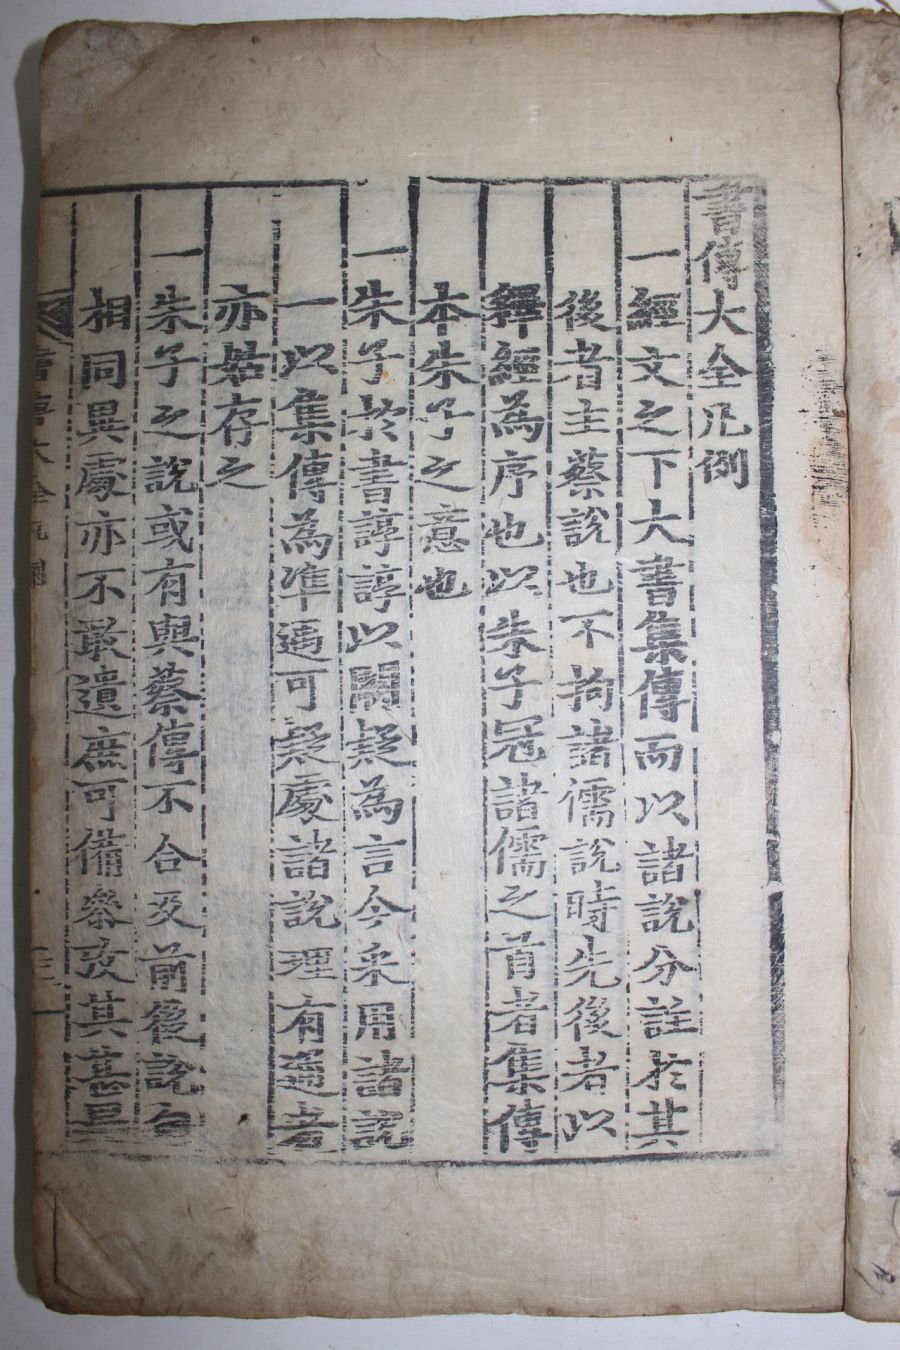 書傳大全凡例
一經文之下大書集傳而以諸說分註於其
後者主蔡說也不拘諸儒說時先後者以
釋經為序也以朱子冠諸儒之首者集傳
本朱子之意也
一朱子於書諄諄以闕疑為言今采用諸說
一以集傳為準遇可疑處諸說理有通者
亦姑存之
一朱子之說或有與蔡傳不合及前後說自
相同異處亦不敢遺庶可備參攷其甚
書傳大全凡例